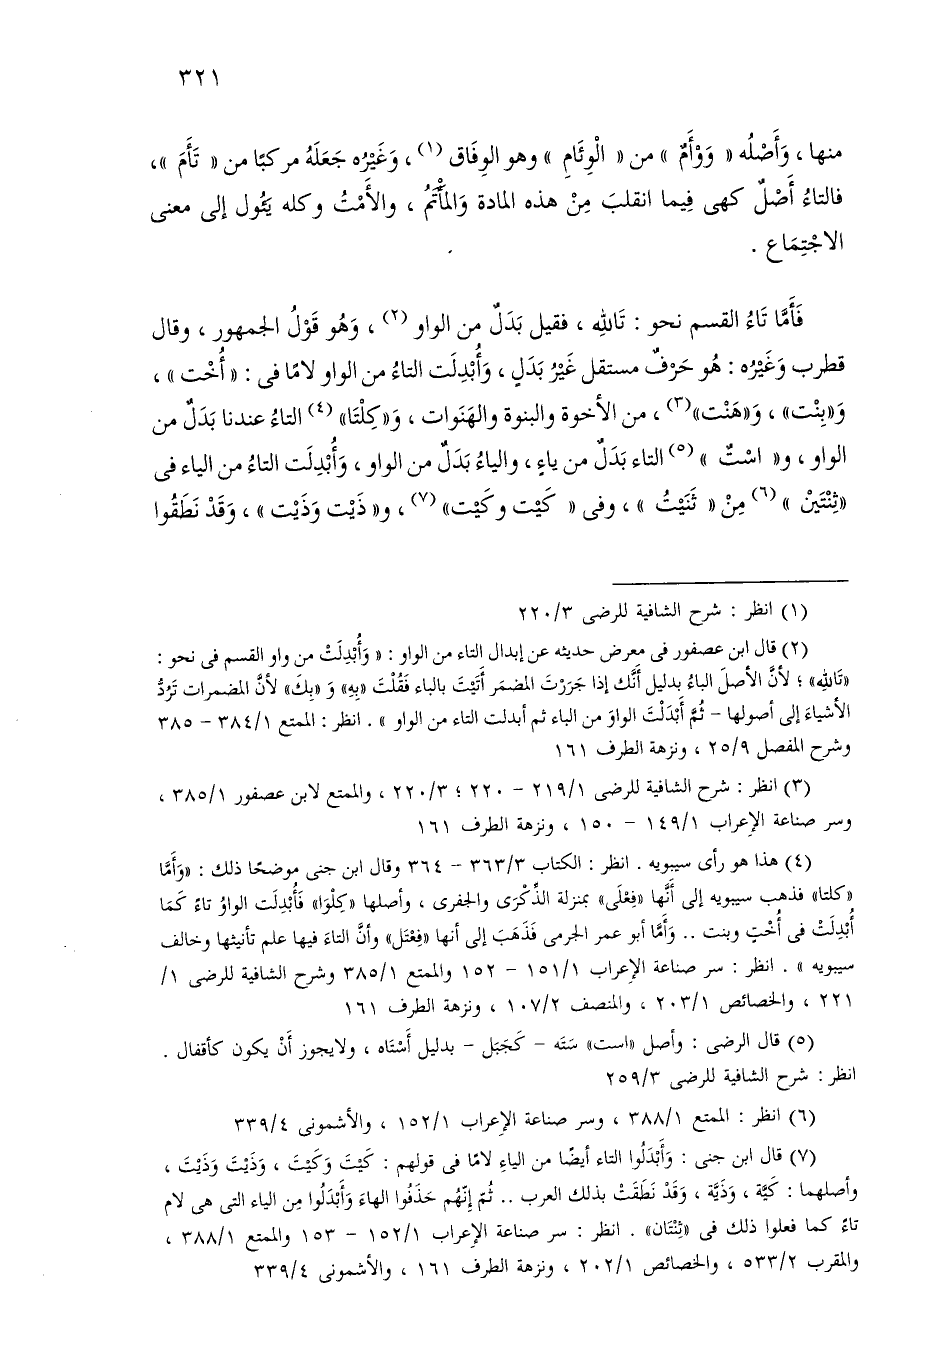 ٣٢١
منها ، وَأَصْلُه « وَوْأَمٌ » من « الْوِئَامِ » وهو الوِفَاق (١) ، وَغَيْرُه جَعَلَهُ مركبًا من « تَأَمَ » ،
فالتاءُ أَصْلٌ كهى فِيما انقلبَ مِنْ هذه المادة وَالمَأْتَمُ ، والأَمْتُ وكله يَئُول إلى معنى
الاجْتِمَاع .
فَأَمَّا تَاءُ القسم نحو : تَاللهِ ، فقيل بَدَلٌ من الواو (٢) ، وَهُو قَوْلُ الجمهور ، وقال
قطرب وَغَيْرُه : هُو حَرْفٌ مستقل غَيْرُ بَدَلٍ ، وَأُبْدِلَت التاءُ من الواو لامًا فى : « أُخْت » ،
وَ«بِنْت» ، وَ«هَنْت»(٣) ، من الأخوة والبنوة والهَنَوات ، وَ«كِلْتَا» (٤) التاءُ عندنا بَدَلٌ من
الواو ، و« اسْتٌ » (٥) التاء بَدَلٌ من ياءٍ ، والياءُ بَدَلٌ من الواو ، وَأُبْدِلَت التاءُ من الياء فى
«ثِنْتَيْنْ » (٦) مِنْ « ثَنَيْتُ » ، وفى « كَيْت وكَيْت» (٧) ، و« ذَيْت وَذَيْت » ، وَقَدْ نَطَقُوا
(١) انظر : شرح الشافية للرضى ٢٢٠/٣
(٢) قال ابن عصفور فى معرض حديثه عن إبدال التاء من الواو : « وَأُبْدِلَتْ من واو القسم فى نحو :
«تَاللهِ» ؛ لأنَّ الأصلَ الباءُ بدليل أَنَّك إذا جَرَرْتَ المضمَر أَتَيْتَ بالباء فَقُلْتَ «بِهِ» وَ «بِكَ» لأنَّ المضمرات تَرُدُّ
الأشياءَ إلى أصولها – ثُمَّ أَبْدَلْتَ الواوَ من الباء ثم أبدلت التاء من الواو » . انظر : الممتع ٣٨٤/١ – ٣٨٥
وشرح المفصل ٢٥/٩ ، ونزهة الطرف ١٦١
(٣) انظر : شرح الشافية للرضى ٢١٩/١ – ٢٢٠ ؛ ٢٢٠/٣ ، والممتع لابن عصفور ٣٨٥/١ ،
وسر صناعة الإعراب ١٤٩/١ – ١٥٠ ، ونزهة الطرف ١٦١
(٤) هذا هو رأى سيبويه . انظر : الكتاب ٣٦٣/٣ – ٣٦٤ وقال ابن جنى موضحًا ذلك : «وَأَمَّا
«كلتا» فذهب سيبويه إلى أَنَّها «فِعْلَى» بمنزلة الذِّكْرَى والجفرى ، وأصلها «كِلْوَا» فَأُبْدِلَت الواوُ تاءً كَمَا
أُبْدِلَتْ فى أُخْتٍ وبنت .. وَأَمَّا أبو عمر الجرمى فَذَهَبَ إلى أنها «فِعْتَل» وأنَّ التاءَ فيها علم تأنيثها وخالف
سيبويه » . انظر : سر صناعة الإعراب ١٥١/١ – ١٥٢ والممتع ٣٨٥/١ وشرح الشافية للرضى ١/
٢٢١ ، والخصائص ٢٠٣/١ ، والمنصف ١٠٧/٢ ، ونزهة الطرف ١٦١
(٥) قال الرضى : وأصل «است» سَتَه – كَجَبَل – بدليل أَسْتَاه ، ولايجوز أَنْ يكون كأقفال .
انظر : شرح الشافية للرضى ٢٥٩/٣
(٦) انظر : الممتع ٣٨٨/١ ، وسر صناعة الإعراب ١٥٢/١ ، والأشمونى ٣٣٩/٤
(٧) قال ابن جنى : وَأَبْدَلُوا التاء أيضًا من الياءِ لامًا فى قولهم : كَيْتَ وَكَيْتَ ، وَذَيْتَ وَذَيْتَ ،
وأصلهما : كَيَّة ، وَذَيَّة ، وَقَدْ نَطَقَتْ بذلك العرب .. ثُمّ إنّهُم حَذَفُوا الهاءَ وَأَبْدَلُوا مِن الياء التى هى لام
تاءً كما فعلوا ذلك فى «ثِنْتَان» . انظر : سر صناعة الإعراب ١٥٢/١ – ١٥٣ والممتع ٣٨٨/١ ،
والمقرب ٥٣٣/٢ ، والخصائص ٢٠٢/١ ، ونزهة الطرف ١٦١ ، والأشمونى ٣٣٩/٤